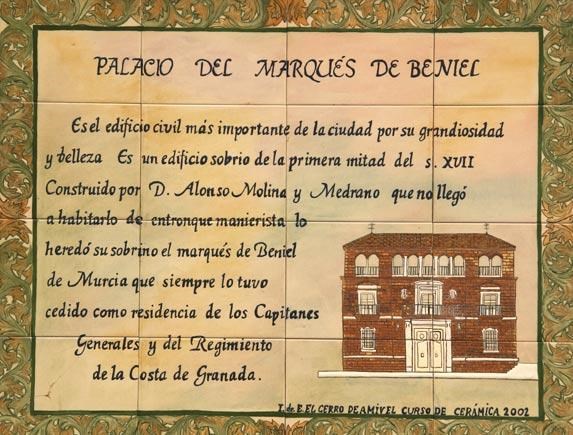 PALACIO DEL MARQUÉS DE BENIEL
Es el edificio civil más importante de la ciudad por su grandiosidad
y belleza Es un edificio sobrio de la primera mitad del s. XVII
Construido por D. Alonso Molina y Medrano que no llegó
a habitarlo de entronque manierista lo
heredó su sobrino el marqués de Beniel
de Murcia que siempre lo tuvo
cedido como residencia de los Capitanes
Generales y del Regimiento
de la Costa de Granada.
I. de E. EL CERRO DEAMIVEL CURSO DE CERÁMICA 2002